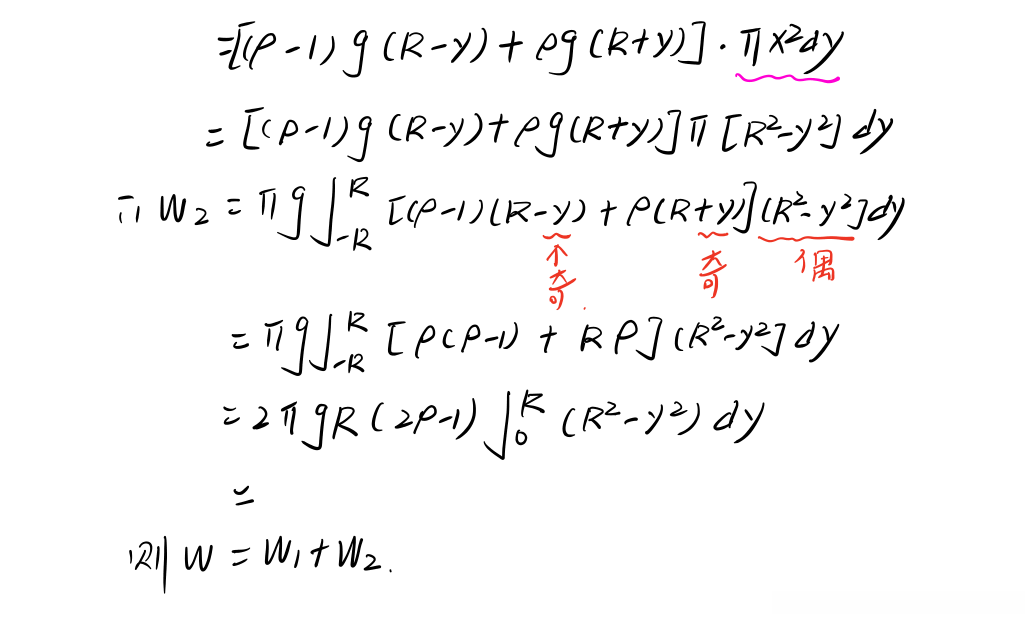 =[(ρ-1)g(R-y)+ρg(R+y)]·πx²dy
=[(ρ-1)g(R-y)+ρg(R+y)]π[R²-y²]dy
W₂=πg∫_{-R}^{R}[(ρ-1)(R-y)+ρ(R+y)](R²-y²]dy
个奇 奇 偶
=πg∫_{-R}^{R}[ρ(ρ-1)+Rρ](R²-y²]dy
=2πgR(2ρ-1)∫_{0}^{R}(R²-y²)dy
=
则W=W₁+W₂.